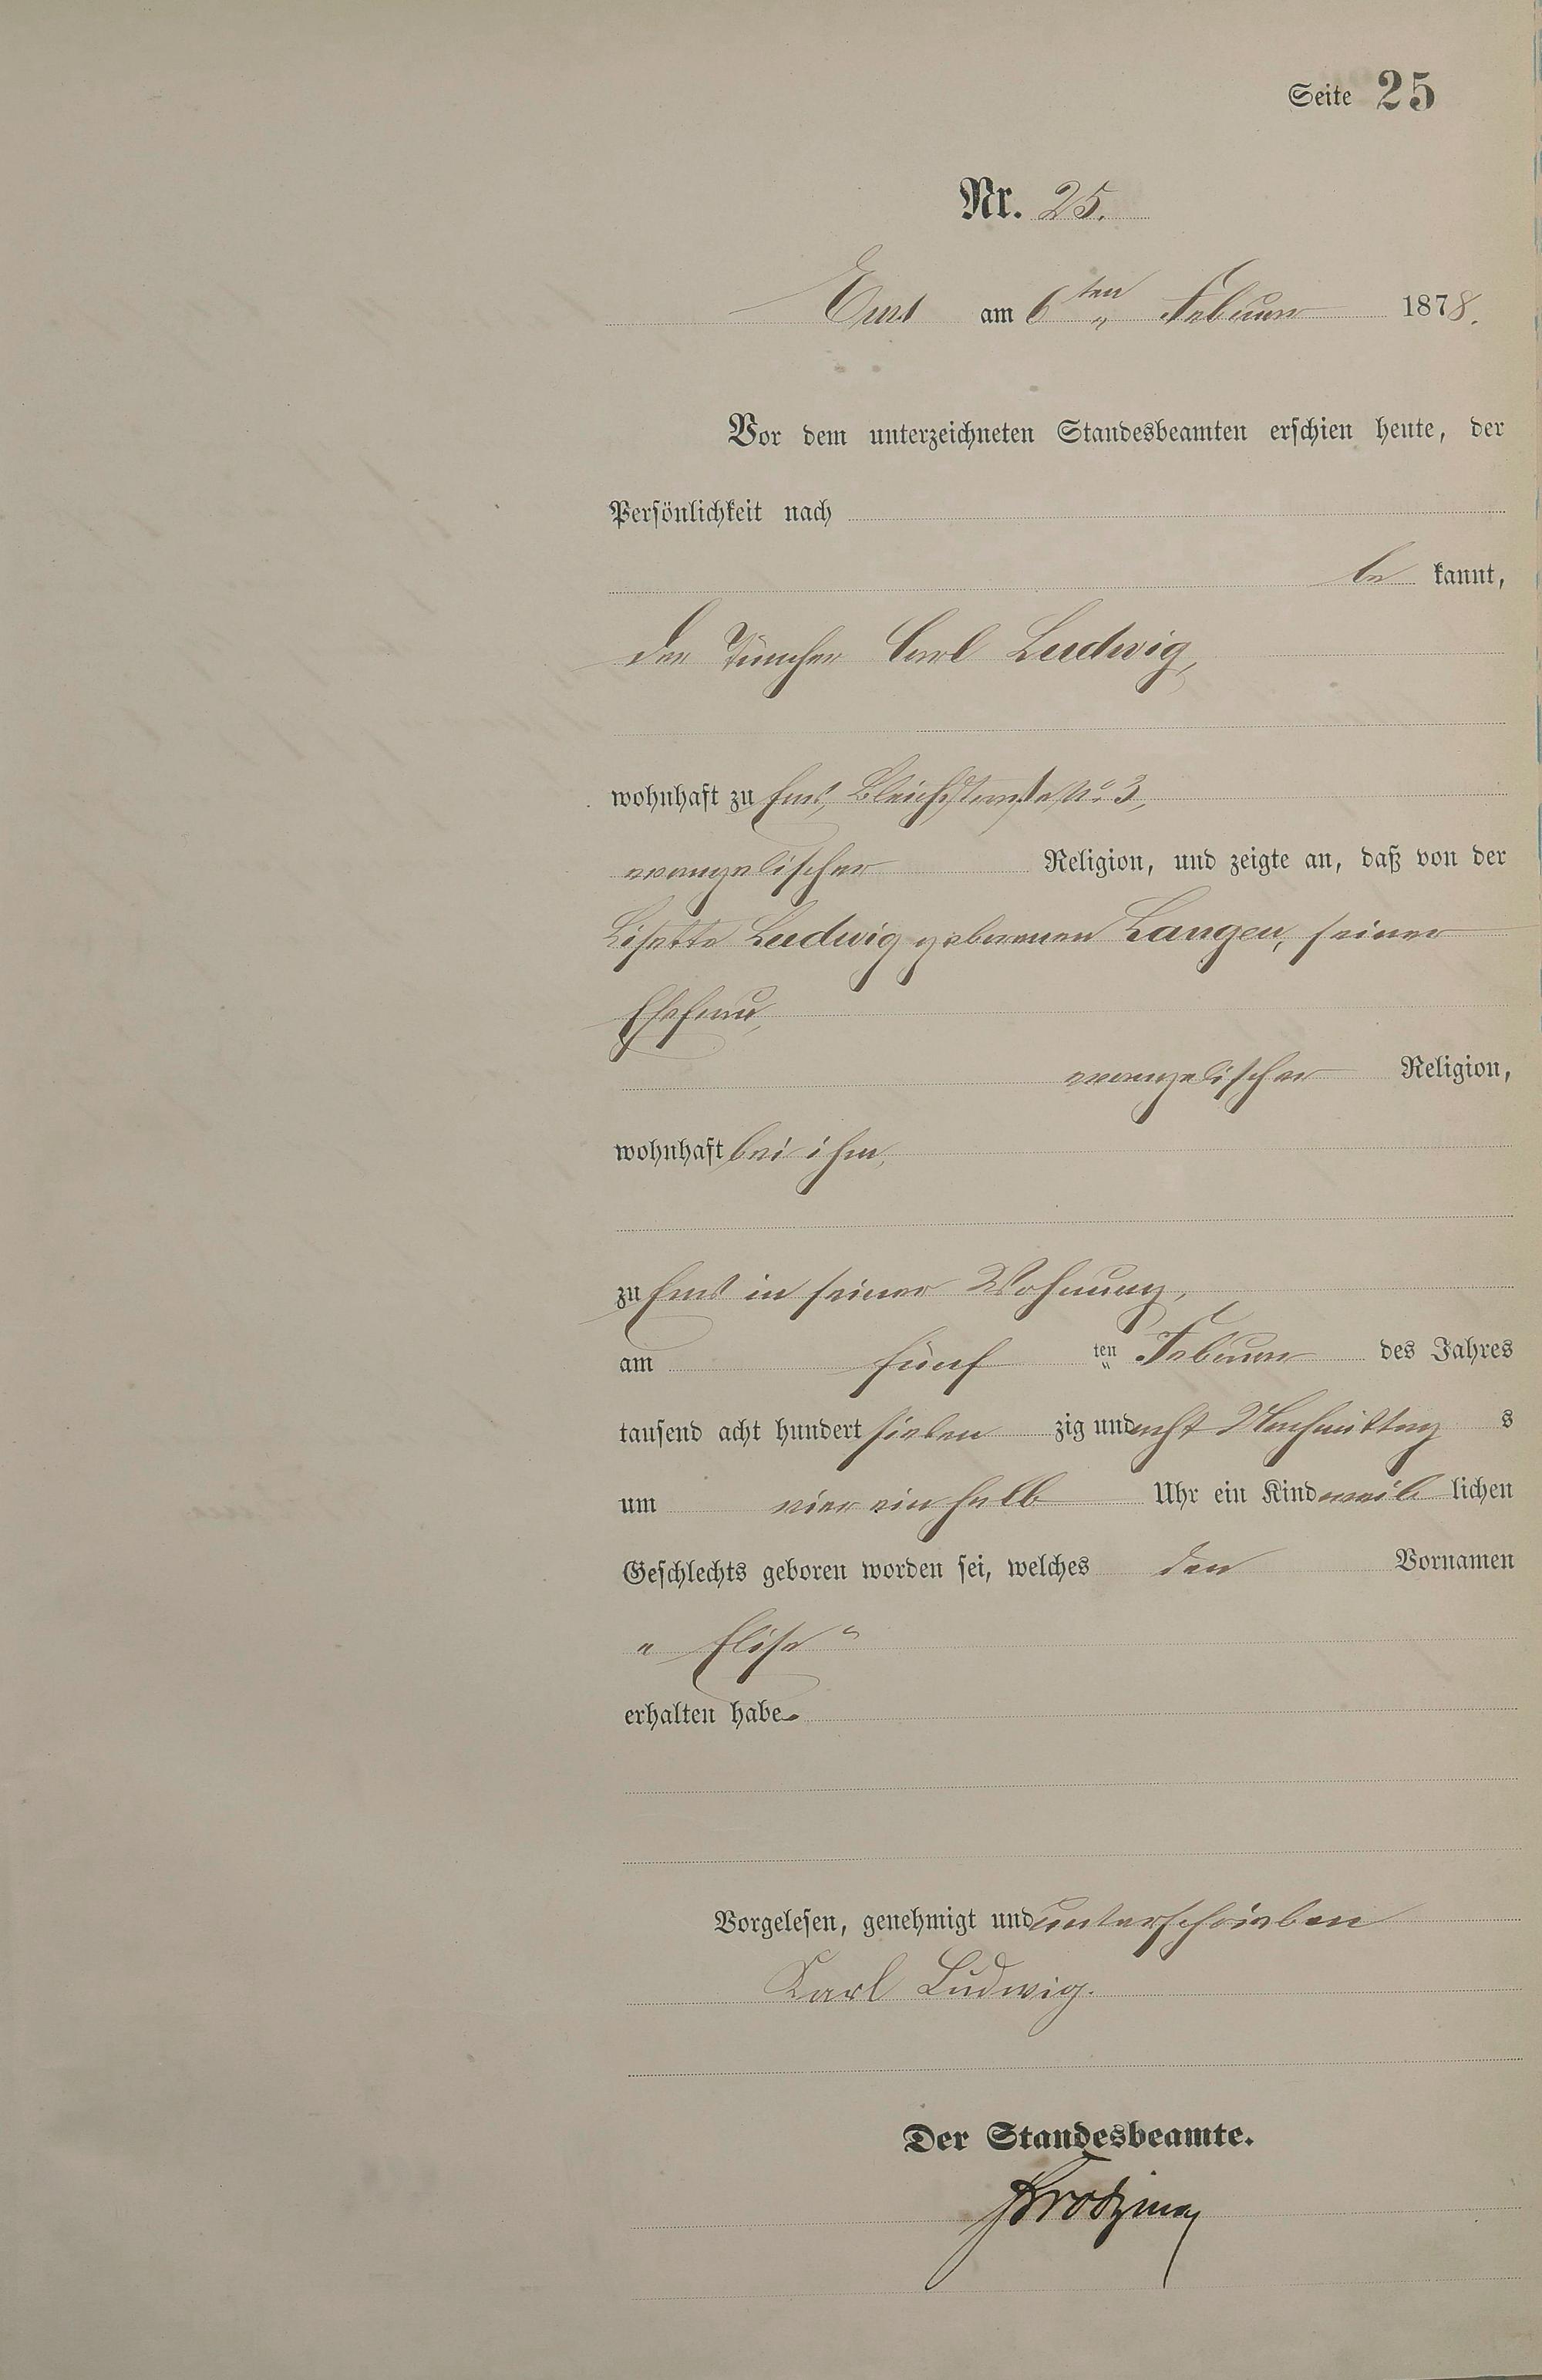 Seite 25
Nr. 25.
Ems am 6ten Februar 1878.
Vor dem unterzeichneten Standesbeamten erschien heute, der
Persönlichkeit nach
be kannt,
der Tüncher Carl Ludwig,
wohnhaft zu Ems, Bleichstraße No. 3,
evangelischer Religion, und zeigte an, daß von der
Lisette Ludwig geborenen Langen, seiner
Ehefrau,
evangelischer Religion,
wohnhaft bei ihm,
zu Ems in seiner Wohnung,
am fünf ten Februar des Jahres
tausend acht hundert sieben zig und acht Nachmittag s
um vier ein halb Uhr ein Kind weib lichen
Geschlechts geboren worden sei, welches den Vornamen
"Elise"
erhalten habe.
Vorgelesen, genehmigt und unterschrieben
Karl Ludwig.
Der Standesbeamte.